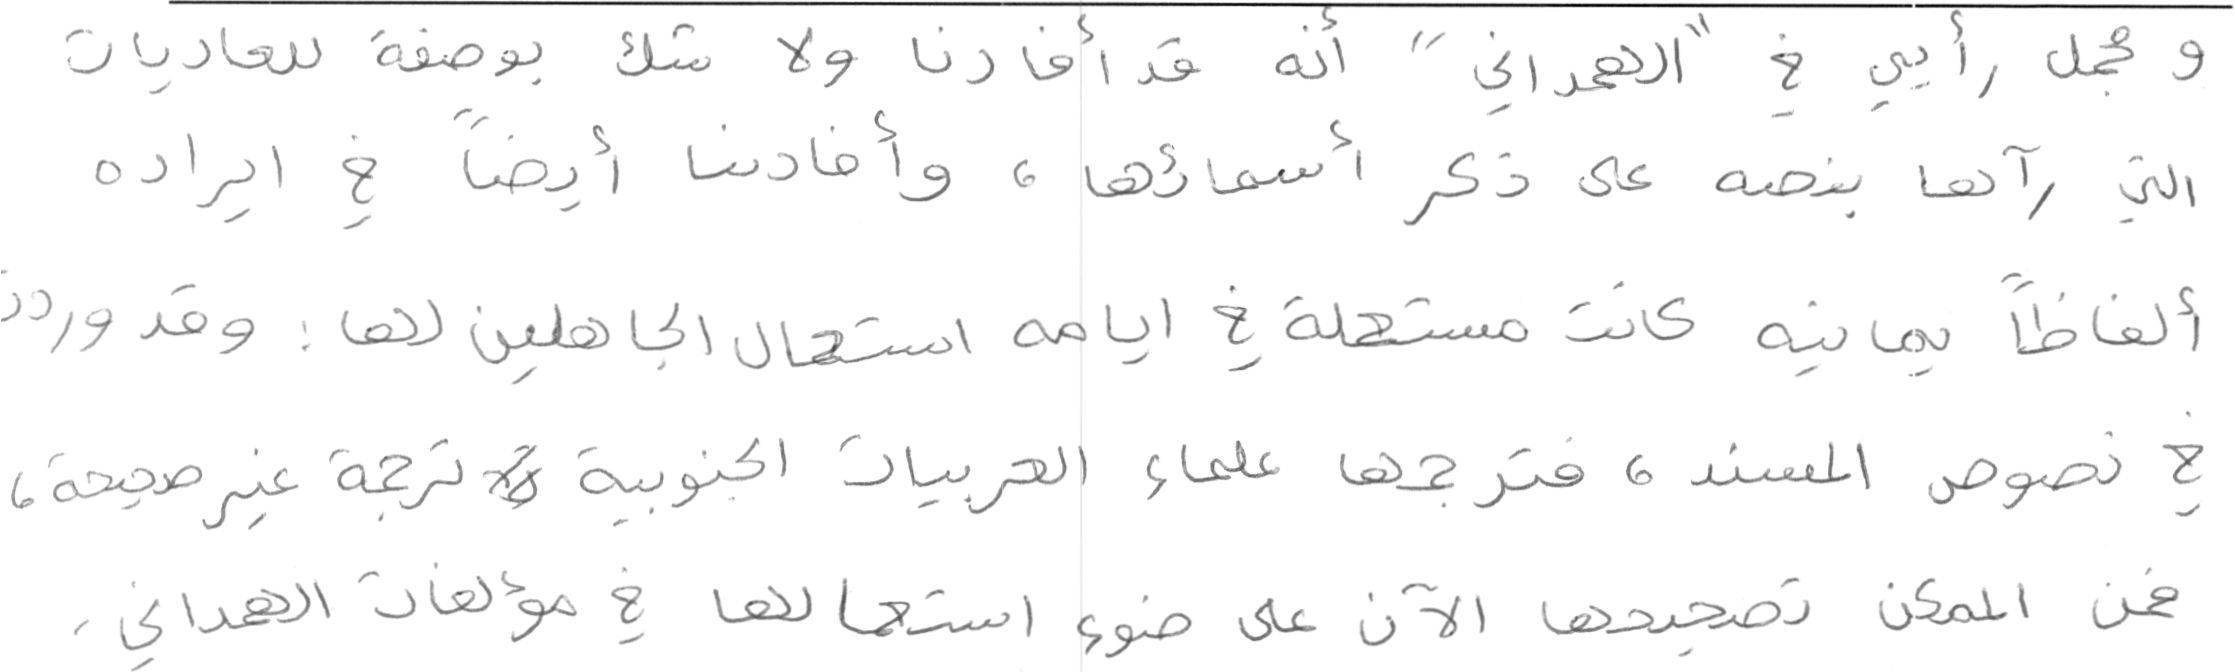 و مجمل رأيي في "الهمداني" أنه قد أفادنا ولا شك بوصفة للعاديات
التي رآها بنصه على ذكر أسماؤها، وأفادنا أيضاً في ايراده
ألفاظاً يمانيه كانت مستعملة في ايامه استعمال الجاهلين لها؛ وقد وردت
في نصوص المسند، فترجمها علماء العربيات الجنوبية ترجمة غير صحيحة،
فمن الممكن تصحيحها الآن على ضوء استعمالها في مؤلفات الهمداني.